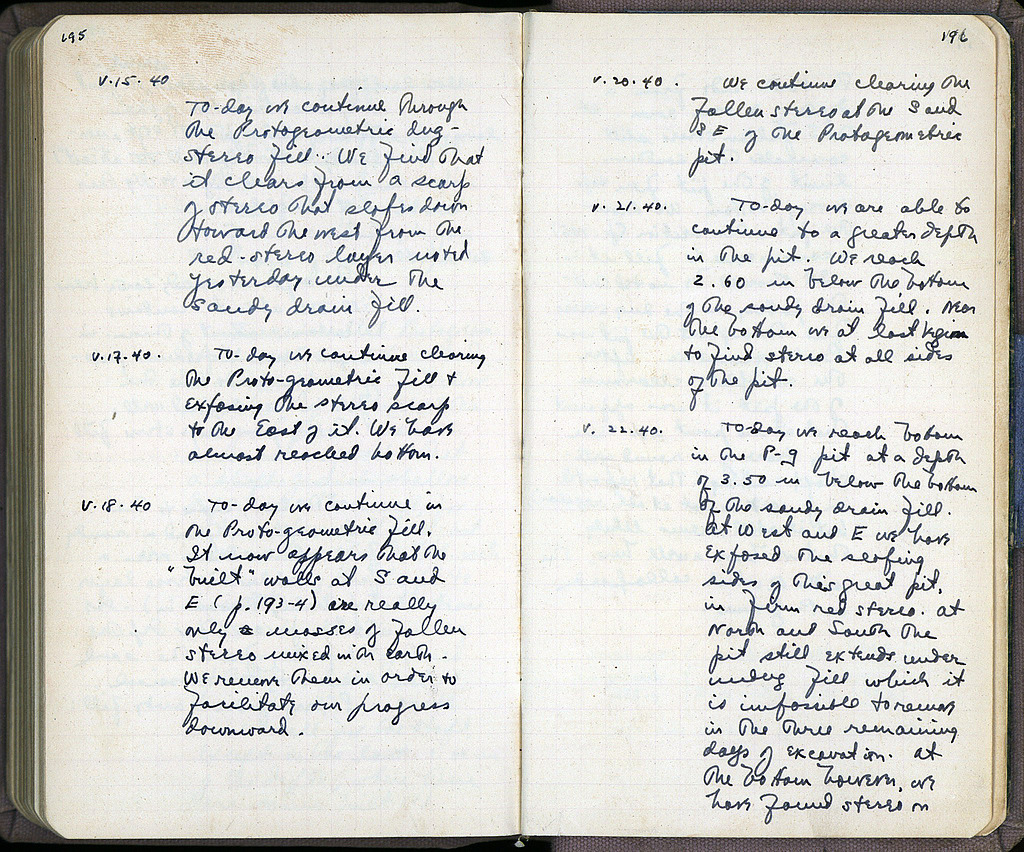 195
V.15.40
To-day we continue through
the Protogeometric dug-
stereo fill. We find that
it clears from a scarp
of stereo that slopes down
toward the west from the
red-stereo layer noted
yesterday under the
sandy drain fill.
V.17.40.
To-day we continue clearing
the Proto-geometric fill +
exposing the stereo scarp
to the East of it. We have
almost reached bottom.
V.18.40
To-day we continue in
the Proto-geometric fill.
It now appears that the
"built" walls at S and
E (p.193-4) are really
only masses of fallen
stereo mixed with earth.
We remove them in order to
facilitate our progress
downward.
196
V.20.40.
We continue clearing the
fallen stereo at the S and
SE of the Protogeometric
pit.
V.21.40.
To-day we are able to
continue to a greater depth
in the pit. We reach
2.60 m below the bottom
of the sandy drain fill. Near
the bottom we at last begin
to find stereo at all sides
of the pit.
V.22.40.
To-day we reach bottom
in the P-g pit at a depth
of 3.50 m below the bottom
of the sandy drain fill.
At West and E we have
exposed the sloping
sides of this great pit,
in firm red stereo. At
North and South the
pit still extends under
undug fill which it
is impossible to remove
in the three remaining
days of excavation. At
the bottom however, we
have found stereo on